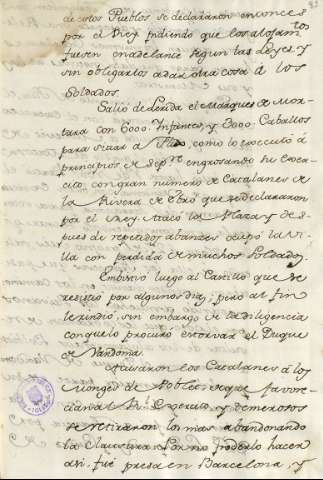 de estos Pueblos se declararon entonces
por el Rey pidiendo que los alojam.tos
fuesen en adelante segun las Leyes, y
sin obligarlos a dar otra cosa à los
Soldados.
Saliò de Lerida el Marques de Mor-
tara con 6000. Infantes, y 3000. Caballos
para sitiar à Flix, como lo executó á
principios de Sep.re engrosando su Exer-
cito, con gran número de Catalanes de
la Rivera de Ebro que se declararon
por el Rey. Atacó la Plaza y des-
pues de repetidos abances ocupó la Vi-
lla con perdida de muchos Soldados.
Embistió luego al Castillo que se
resistió por algunos dias; pero al fin
le rindió, sin embargo de la diligencia
con que lo procuró estorvar el Duque
de Vandoma.
Avisaron los Catalanes à los
Monges de Poblet que favore-
cian al R.l Exercito, y temerosos
se retiraron los mas abandonando
la Clausura y por no poderlo hacer
asi, fué presa en Barcelona, y